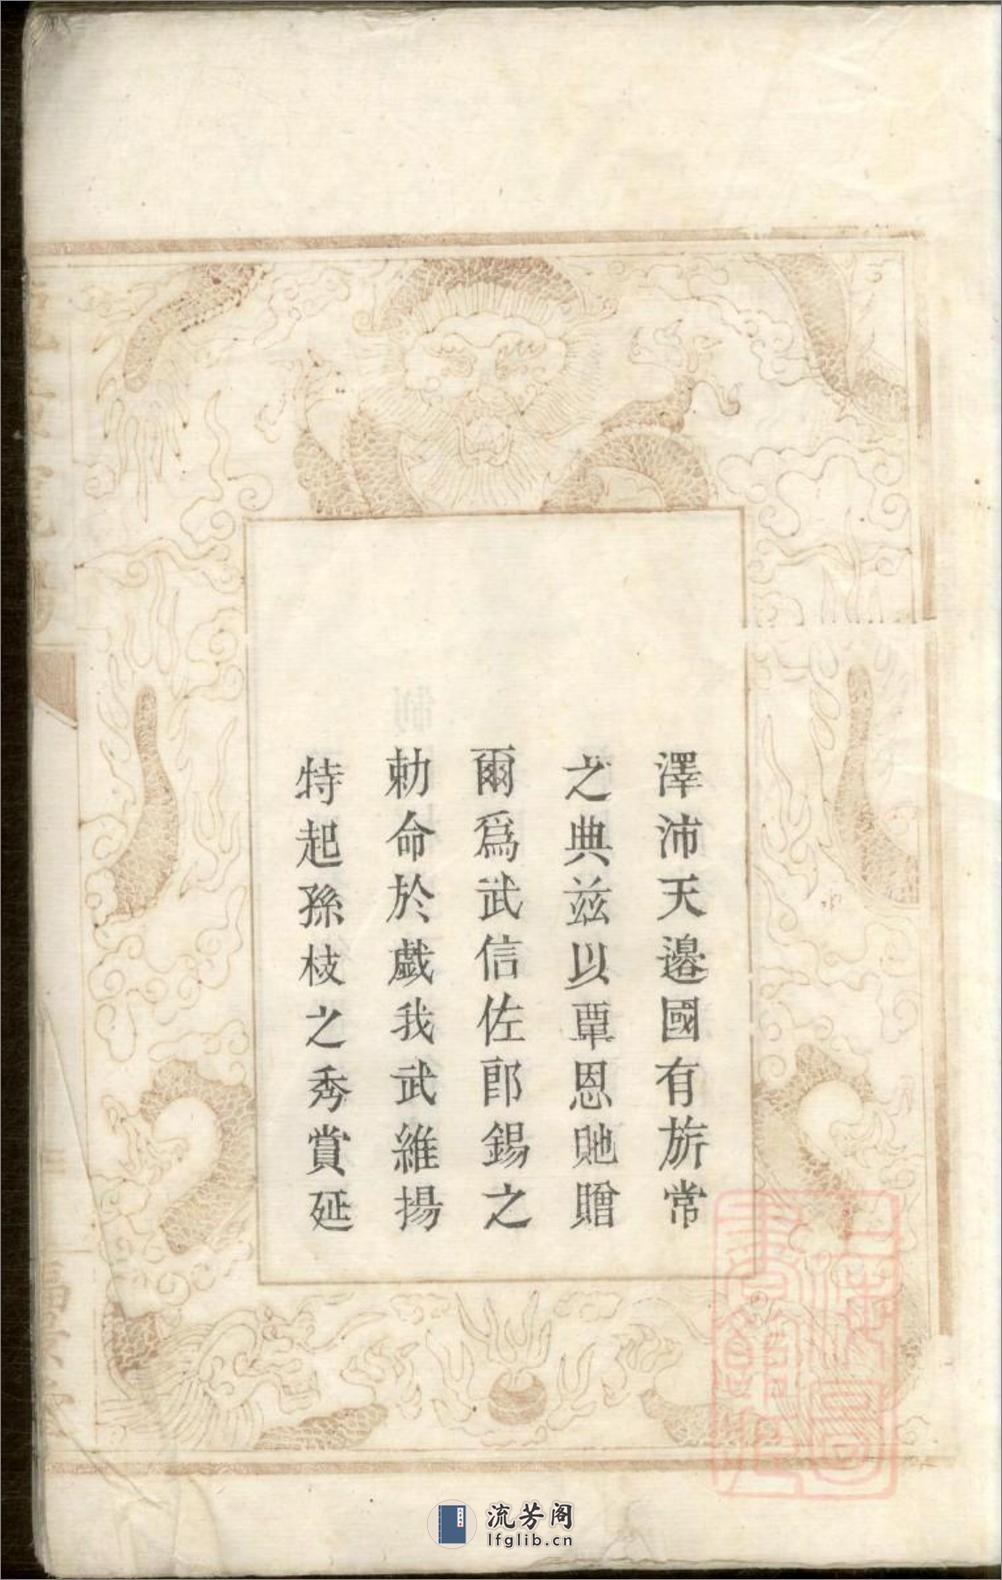 澤沛天邉國有旂常
之典兹以覃恩貤贈
爾爲武信佐郎錫之
勅命於戯我武維揚
特起孫枝之秀賞延
流芳阁
lfglib.cn